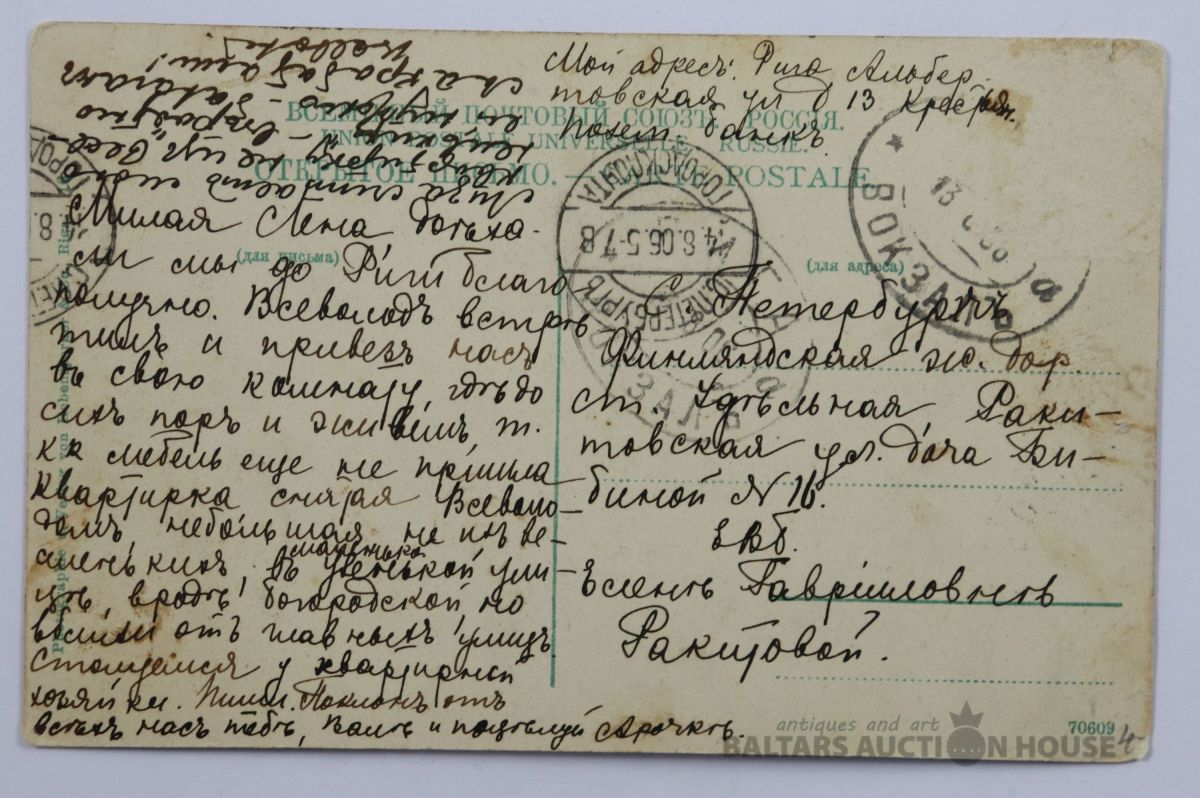 Мой адресъ: Рига Альбер-
товская ул д 13 Крестьян.
позем. банкъ
ВСЕМІРНЫЙ ПОЧТОВЫЙ СОЮЗЪ. РОССІЯ.
UNION POSTALE UNIVERSELLE. RUSSIE.
ОТКРЫТОЕ ПИСЬМО. — CARTE POSTALE.
(для письма)
(для адреса)
Милая Лена доѣха-
ли мы до Риги благо-
получно. Всеволодъ встрѣ
тилъ и привезъ насъ
въ свою комнату, гдѣ до
сихъ поръ и живемъ, т.
к к мебель еще не пришла
квартирка снятая Всеволо-
домъ, небольшая не изъ ве-
селенькихъ, въ маленькой
узенькой ули-
цѣ, вродѣ Богородской, но
вблизи отъ главныхъ улицъ.
Столуемся у квартирной
хозяйки. Пиши. Поклонъ отъ
всѣхъ насъ тебѣ, Валѣ и поцѣлуй Арочкѣ.
С. Петербургъ
Финляндская ж. дор.
ст. Удѣльная Раки-
товская ул. дача Би-
биной N 16.
ЕВб.
Еленѣ Гавриловнѣ
Ракитовой.
ГОРОДСКАЯ ПОЧТА
14.8.06.5-7
8
С.ПЕТЕРБУРГЪ
ВОКЗАЛЪ
13
ВОКЗАЛЪ
70609
4
antiques and art
BALTARS AUCTION HOUSE